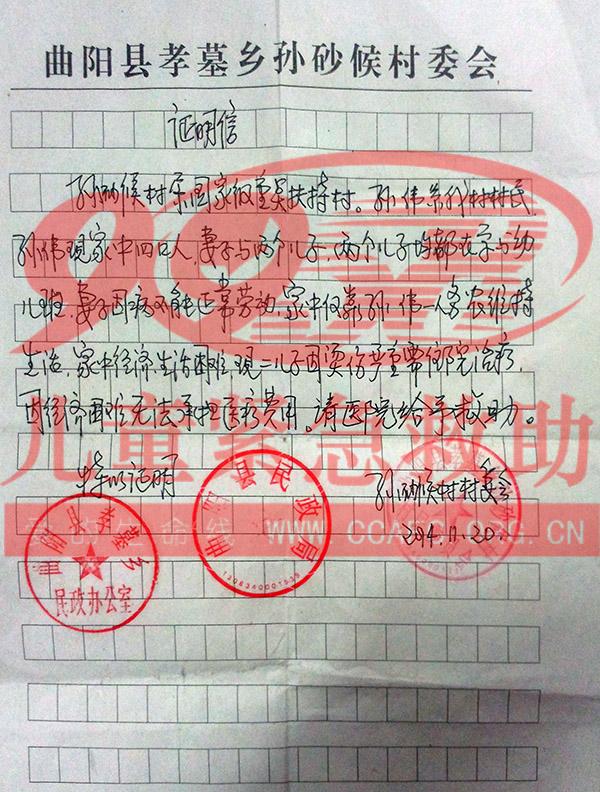 曲阳县孝墓乡孙砂候村委会
证明信
孙砂候村系国家级重点扶持村。孙伟系我村村民
孙伟现家中四口人,妻子与两个儿子,两个儿子均都在学与幼
儿班,妻子因病不能正常劳动,家中仅靠孙伟一人务农维持
生活,家中经济生活困难,现二儿子因烫伤严重需住院治疗,
因经济困难无法承担医疗费用。请医院给予救助。
儿童紧急救助
特以证明
孙砂候村村委会
2014.11.20.
爱的生命线 WWW.CCAFC.ORG.CN
曲阳县孝墓乡
民政办公室
曲阳县民政局